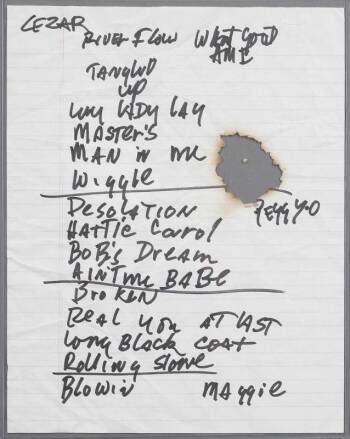 CEZAR
RIVER FLOW WHAT GOOD
AM I
TANGLED
UP
LAY LADY LAY
MASTER'S
MAN in ME
Wiggle
DESOLATION PEGGY-O
HATTIE Carrol
BoB's Dream
AIN'T ME BABE
BroKEN
Real You AT LAST
Long Black COAT
Rolling Stone
BLOWIN MAggie